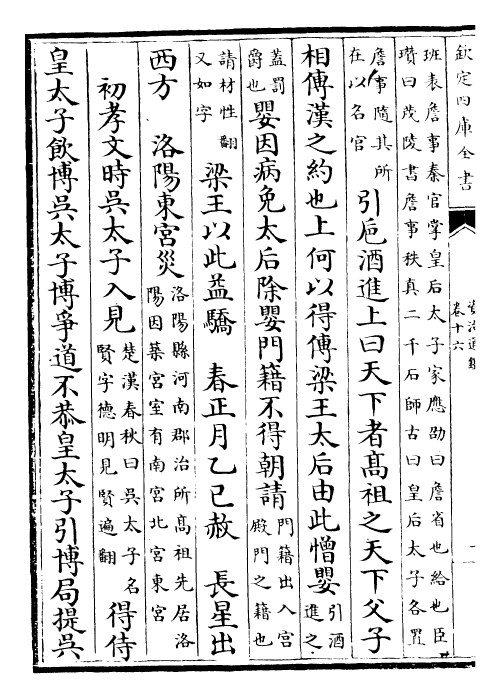 欽定四庫全書
資治通鑑
卷十六
班表詹事秦官掌皇后太子家應劭曰詹省也給也臣
瓚曰茂陵書詹事秩真二千石師古曰皇后太子各置
詹事隨其所
在以名官
引巵酒進上曰天下者髙祖之天下父子
相傳漢之約也上何以得傳梁王太后由此憎嬰
引酒
進之
蓋罰
爵也
嬰因病免太后除嬰門籍不得朝請
門籍出入宫
殿門之籍也
請材性翻
又如字
梁王以此益驕　春正月乙巳赦　長星出
西方　洛陽東宫災
洛陽縣河南郡治所髙祖先居洛
陽因築宫室有南宫北宫東宫
初孝文時吳太子入見
楚漢春秋曰吳太子名
賢字德明見賢遍翻
得侍
皇太子飲博吳太子博爭道不恭皇太子引博局提吳